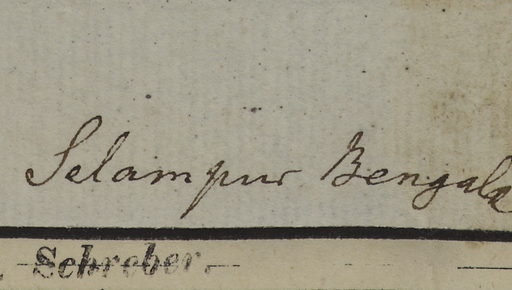 Selampur Bengala
. Schreber.